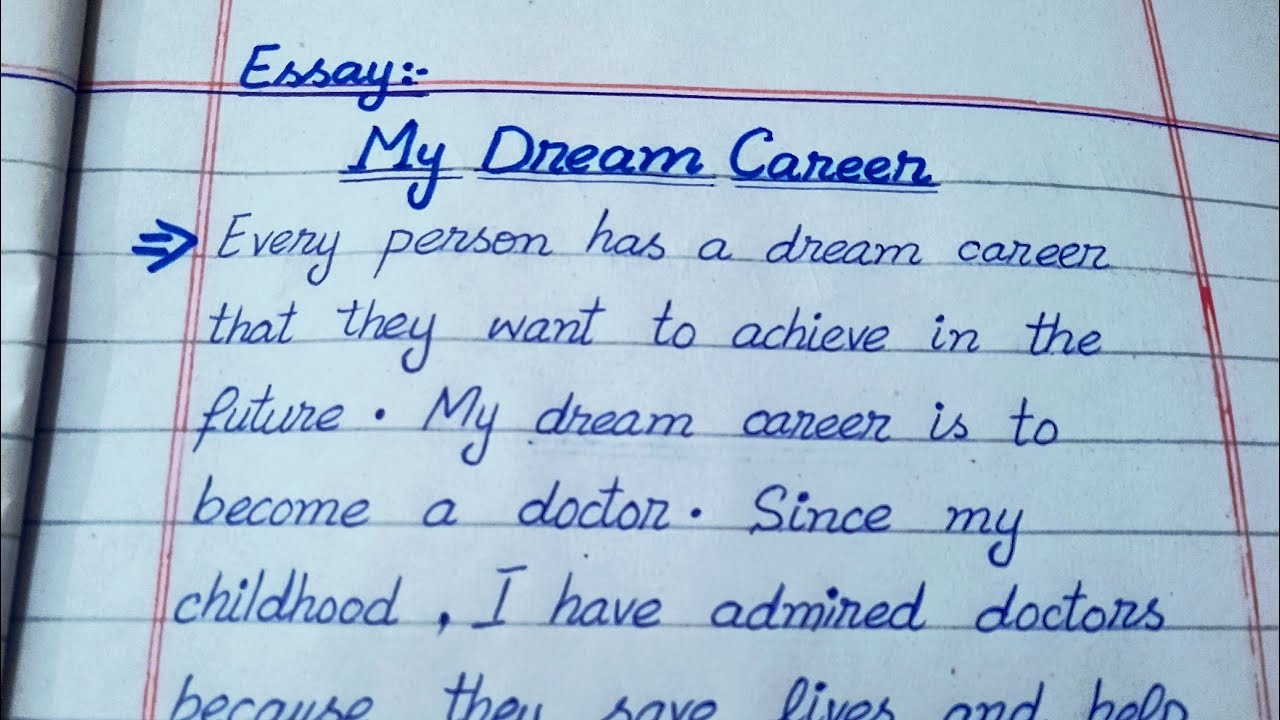 Essay:-
My Dream Career
⇒ Every person has a dream career
that they want to achieve in the
future. My dream career is to
become a doctor. Since my
childhood, I have admired doctors
because they save lives and help